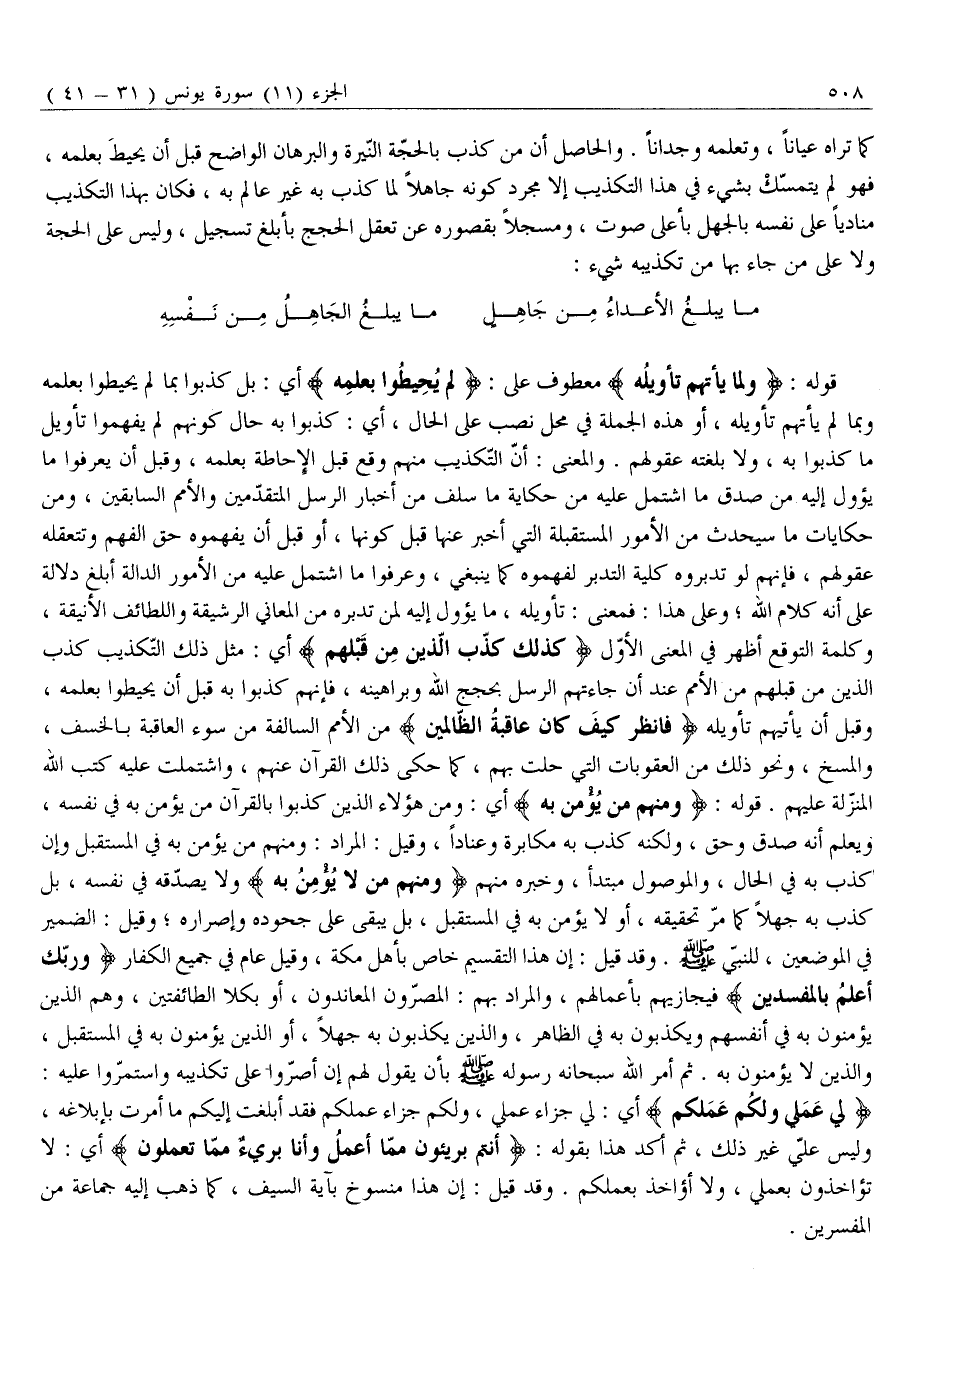 ٥٠٨ الجزء (١١) سورة يونس ( ٣١ – ٤١ )
كما تراه عياناً ، وتعلمه وجداناً . والحاصل أن من كذب بالحجّة النّيرة والبرهان الواضح قبل أن يحيطَ بعلمه ،
فهو لم يتمسّكْ بشيء في هذا التكذيب إلا مجرد كونه جاهلاً لما كذب به غير عالم به ، فكان بهذا التكذيب
منادياً على نفسه بالجهل بأعلى صوت ، ومسجلاً بقصوره عن تعقل الحجج بأبلغ تسجيل ، وليس على الحجة
ولا على من جاء بها من تكذيبه شيء :
مـا يبلـغُ الأعـداءُ مِـن جَاهِـلٍ مـا يبلـغُ الجَاهِـلُ مِـن نَـفْسِهِ
قوله : ﴿ ولما يأتهم تأويلُه ﴾ معطوف على : ﴿ لم يُحِيطُوا بعلمِه ﴾ أي : بل كذبوا بما لم يحيطوا بعلمه
وبما لم يأتهم تأويله ، أو هذه الجملة في محل نصب على الحال ، أي : كذبوا به حال كونهم لم يفهموا تأويل
ما كذبوا به ، ولا بلغته عقولهم . والمعنى : أنّ التّكذيب منهم وقع قبل الإحاطة بعلمه ، وقبل أن يعرفوا ما
يؤول إليه من صدق ما اشتمل عليه من حكاية ما سلف من أخبار الرسل المتقدّمين والأمم السابقين ، ومن
حكايات ما سيحدث من الأمور المستقبلة التي أخبر عنها قبل كونها ، أو قبل أن يفهموه حق الفهم وتتعقله
عقولهم ، فإنهم لو تدبروه كلية التدبر لفهموه كما ينبغي ، وعرفوا ما اشتمل عليه من الأمور الدالة أبلغ دلالة
على أنه كلام الله ؛ وعلى هذا : فمعنى : تأويله ، ما يؤول إليه لمن تدبره من المعاني الرشيقة واللطائف الأنيقة ،
وكلمة التوقع أظهر في المعنى الأوّل ﴿ كذلك كذّب الّذين مِن قَبْلهم ﴾ أي : مثل ذلك التّكذيب كذب
الذين من قبلهم من الأمم عند أن جاءتهم الرسل بحجج الله وبراهينه ، فإنهم كذبوا به قبل أن يحيطوا بعلمه ،
وقبل أن يأتيهم تأويله ﴿ فانظر كيفَ كان عاقبةُ الظّالمين ﴾ من الأمم السالفة من سوء العاقبة بـالخسف ،
والمسخ ، ونحو ذلك من العقوبات التي حلت بهم ، كما حكى ذلك القرآن عنهم ، واشتملت عليه كتب الله
المنزّلة عليهم . قوله : ﴿ ومنهم من يُؤْمن به ﴾ أي : ومن هؤلاء الذين كذبوا بالقرآن من يؤمن به في نفسه ،
ويعلم أنه صدق وحق ، ولكنه كذب به مكابرة وعناداً ، وقيل : المراد : ومنهم من يؤمن به في المستقبل وإن
كذب به في الحال ، والموصول مبتدأ ، وخبره منهم ﴿ ومنهم من لا يُؤْمِنُ به ﴾ ولا يصدّقه في نفسه ، بل
كذب به جهلاً كما مرّ تحقيقه ، أو لا يؤمن به في المستقبل ، بل يبقى على جحوده وإصراره ؛ وقيل : الضمير
في الموضعين ، للنبيّ ﷺ . وقد قيل : إن هذا التقسيم خاص بأهل مكة ، وقيل عام في جميع الكفار ﴿ وربّك
أعلمُ بالمفسدين ﴾ فيجازيهم بأعمالهم ، والمراد بهم : المصرّون المعاندون ، أو بكلا الطائفتين ، وهم الذين
يؤمنون به في أنفسهم ويكذبون به في الظاهر ، والذين يكذبون به جهلاً ، أو الذين يؤمنون به في المستقبل ،
والذين لا يؤمنون به . ثم أمر الله سبحانه رسوله ﷺ بأن يقول لهم إن أصرّوا على تكذيبه واستمرّوا عليه :
﴿ لي عَمَلي ولكُم عَمَلكم ﴾ أي : لي جزاء عملي ، ولكم جزاء عملكم فقد أبلغت إليكم ما أمرت بإبلاغه ،
وليس عليّ غير ذلك ، ثم أكد هذا بقوله : ﴿ أنتم بريئون ممّا أعملُ وأنا بريءٌ ممّا تعملون ﴾ أي : لا
تؤاخذون بعملي ، ولا أؤاخذ بعملكم . وقد قيل : إن هذا منسوخ بآية السيف ، كما ذهب إليه جماعة من
المفسرين .